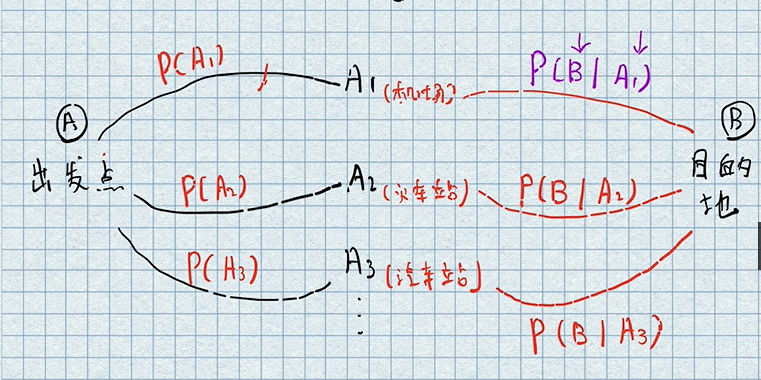 P(A₁)
A₁ (机场)
P(B | A₁)
A
B
出发点
目的地
P(A₂)
A₂ (火车站)
P(B | A₂)
P(A₃)
A₃ (汽车站)
P(B | A₃)